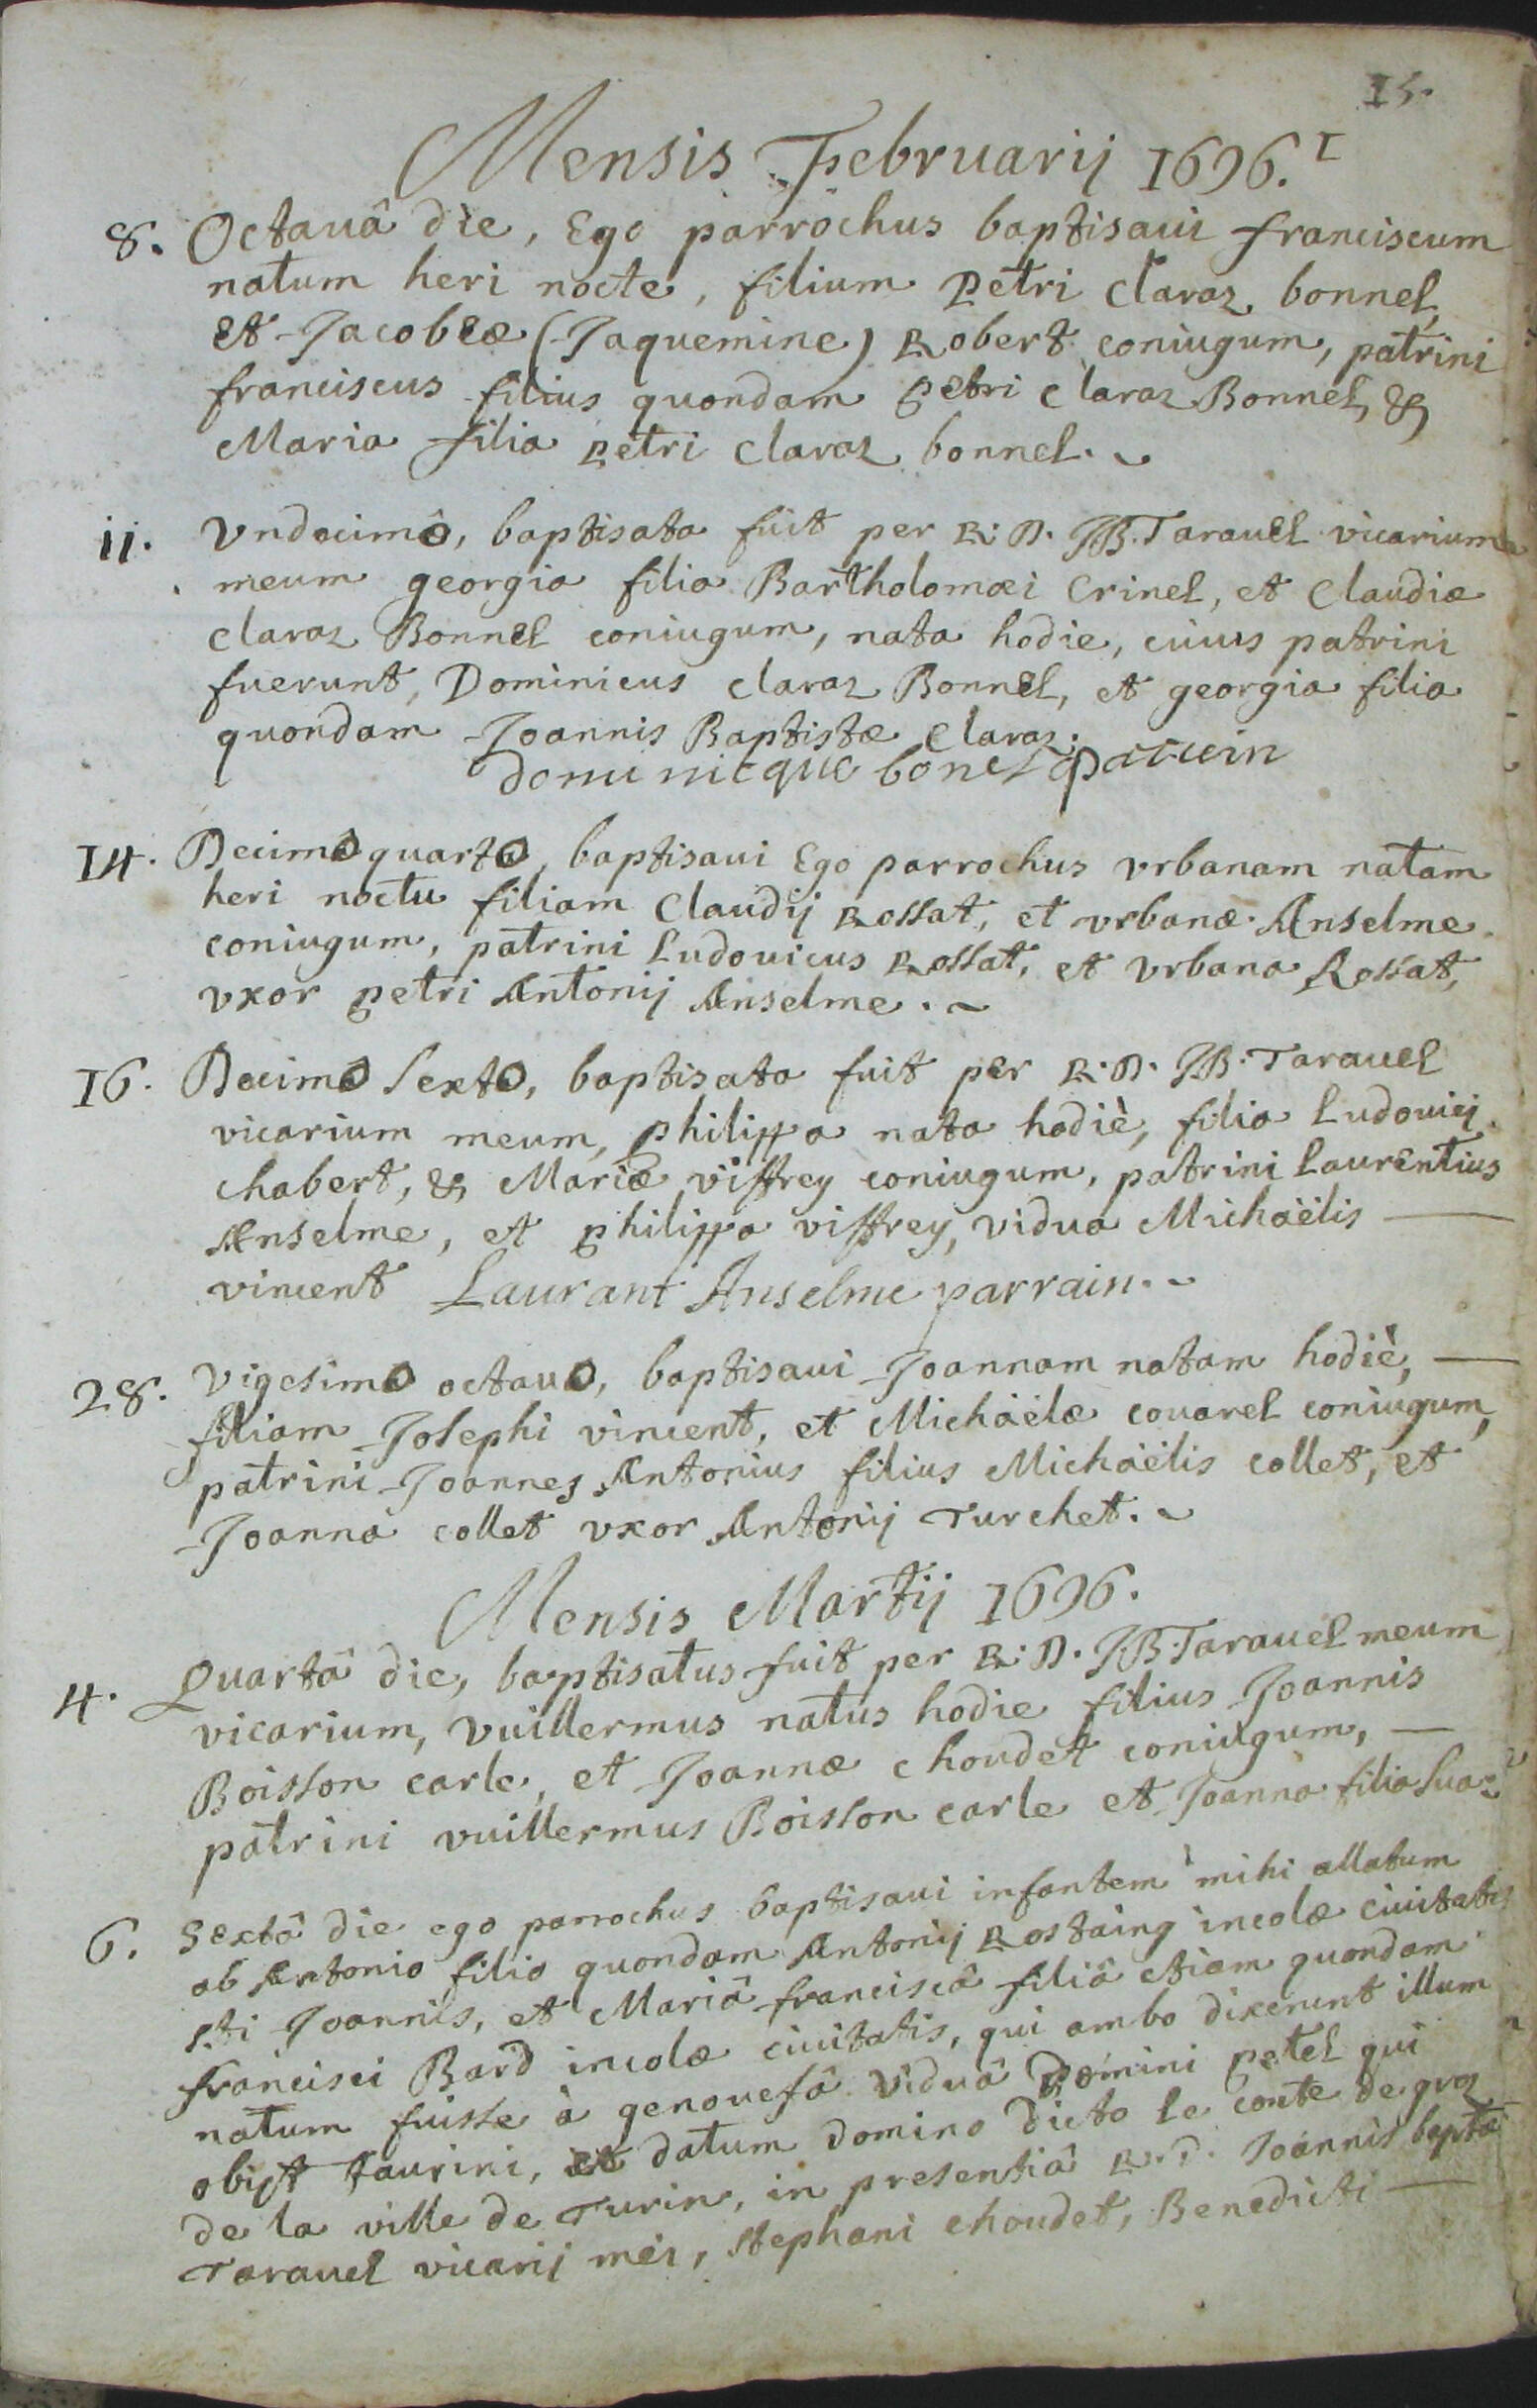 15.
Mensis Februarij 1696. I
8. Octauâ die, Ego parrochus baptisaui franciscum
natum heri nocte, filium Petri Claraz bonnel,
et Jacobeæ (Jaquemine) Robert coniugum, patrini
franciscus filius quondam Petri Claraz Bonnel, &
Maria filia petri Claraz bonnel.
11. Vndecimo, baptisata fuit per R. D. JB. Tarauel vicarium
meum georgia filia Bartholomæi Crinel, et Claudiæ
claraz Bonnel coniugum, nata hodie, cuius patrini
fuerunt, Dominicus claraz Bonnel, et georgia filia
quondam Joannis Baptistæ Claraz.
dominicque bonel parrein
14. Decimo quarto, baptisaui Ego parrochus vrbanam natam
heri noctu filiam Claudij Rossat, et vrbanæ Anselme
coniugum, patrini Ludouicus Rossat, et Vrbana Rossat,
vxor petri Antonij Anselme.
16. Decimo Sexto, baptisata fuit per R. D. JB. Tarauel
vicarium meum, philippa nata hodiè, filia Ludouici
chabert, & Mariæ viffrey coniugum, patrini Laurentius
Anselme, et philippa viffrey, vidua Michaëlis
vincent Laurant Anselme parrain.
28. Vigesimo octauo, baptisaui Joannam natam hodiè,
filiam Josephi vincent, et Michaëlæ couarel coniugum,
patrini Joannes Antonius filius Michaëlis collet, et
Joanna collet vxor Antonij Turchet.
Mensis Martij 1696.
4. Quartâ die, baptisatus fuit per R. D. J.B. Tarauel meum
vicarium, Vuillermus natus hodie filius Joannis
Boisson carle, et Joannæ choudet coniugum,
patrini vuillermus Boisson carle et Joanna filia sua
6. Sextâ die ego parrochus baptisaui infantem mihi allatum
ab Antonio filio quondam Antonij Rostaing incolæ ciuitatis
s.ti Joannis, et Mariâ franciscâ filiâ etiam quondam
francisci Bard incolæ ciuitatis, qui ambo dixerunt illum
natum fuisse à genouefâ viduâ Domini petel qui
obijt taurini, et datum domino dicto le conte de groz
de la ville de Turin, in presentiâ R. D. Joannis bapt.æ
Tarauel vicarij mei, stephani choudet, Benedicti